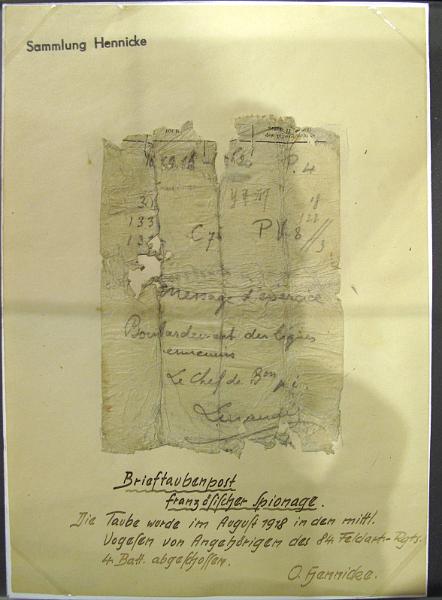 Sammlung Hennicke
P. 4
31
133
13
C7
P V 8
Message d'exercice
Bombardement des lignes
ennemis
Le Chef de Bon p. i.
Brieftaubenpost
französischer Spionage.
Die Taube wurde im August 1918 in den mittl.
Vogesen von Angehörigen des 84. Feldart.-Rgts.
4. Batt. abgeschossen.
O. Hennicke.